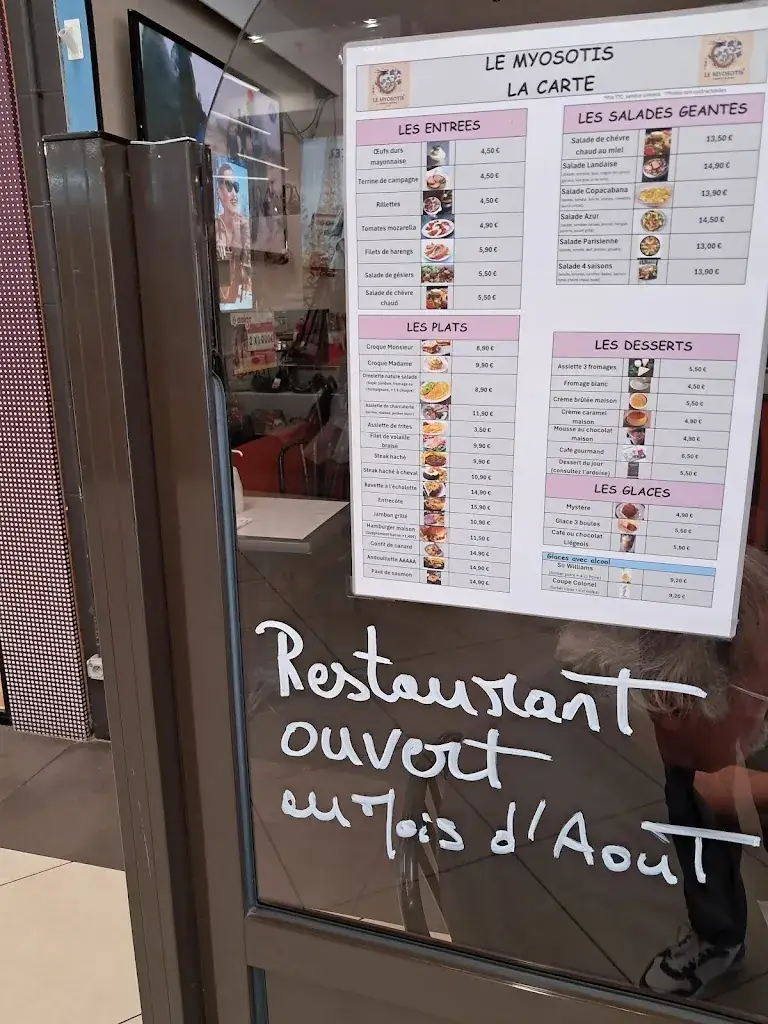 LE MYOSOTIS
LA CARTE
LE MYOSOTIS
LE MYOSOTIS
LES ENTREES
Œufs durs mayonnaise 4,50 €
Terrine de campagne 4,50 €
Rillettes 4,50 €
Tomates mozarella 4,90 €
Filets de harengs 5,90 €
Salade de gésiers 5,50 €
Salade de chèvre chaud 5,50 €
LES PLATS
Croque Monsieur 8,90 €
Croque Madame 9,90 €
Omelette nature salade 8,90 €
Assiette de charcuterie 11,90 €
Assiette de frites 3,50 €
Filet de volaille braisé 9,90 €
Steak haché 9,90 €
Steak haché à cheval 10,90 €
Bavette à l'échalotte 14,90 €
Entrecôte 15,90 €
Jambon grillé 10,90 €
Hamburger maison 11,50 €
Confit de canard 14,90 €
Andouillette AAAAA 14,90 €
Pavé de saumon 14,90 €
LES SALADES GEANTES
Salade de chévre chaud au miel 13,50 €
Salade Landaise 14,90 €
Salade Copacabana 13,90 €
Salade Azur 14,50 €
Salade Parisienne 13,00 €
Salade 4 saisons 13,90 €
LES DESSERTS
Assiette 3 fromages 5,50 €
Fromage blanc 4,50 €
Crème brûlée maison 5,50 €
Crème caramel maison 4,90 €
Mousse au chocolat maison 4,90 €
Café gourmand 6,50 €
Dessert du jour (consultez l'ardoise) 5,50 €
LES GLACES
Mystère 4,90 €
Glace 3 boules 5,50 €
Café ou chocolat Liégeois 5,90 €
Glaces avec alcool
So Williams 9,20 €
Coupe Colonel 9,20 €
Restaurant
ouvert
au Mois d'Aout